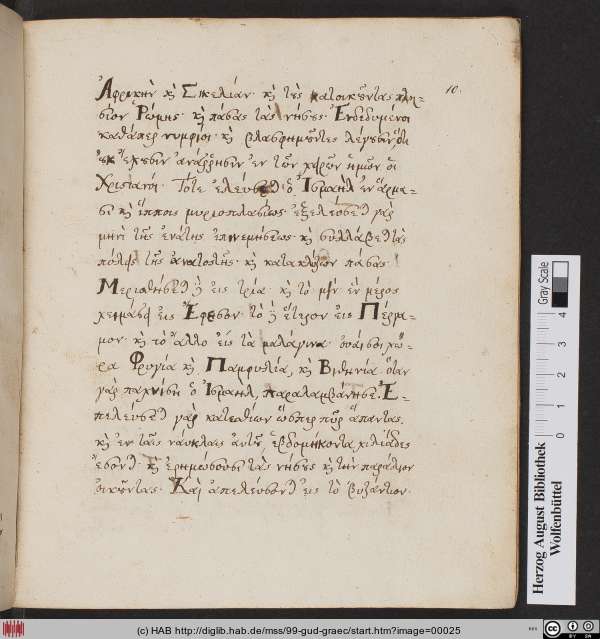 10.
Ἀφρικὴν κὶ Σικελίαν· κὶ τὲς κατοικȣ͂ντας πλη-
σίον Ῥώμης· κὶ πάσας τὰς νήσȣς· Ἐνδεδυμένοι
καθάπερ νυμφίοι· κὶ βλασφημȣ͂ντες λέγȣσιν ὅτι
ȣ̓κ ἔχȣσιν ἀνάρρησιν ἐν τῶν χειρῶν ἡμῶν οἱ
Χριστιανοί. Τότε ἐλεύσεται ὁ Ἰσμαὴλ ἐν ἅρμα-
σι κὶ ἵπποις μυριοπλασίως· ἐξελεύσεται γὰρ
μηνὶ τῆς ἐνάτης ἐπινεμήσεως· κὶ συλλάβεται τὰς
πόλεις τῆς ἀνατολῆς· κὶ κατακλύζων πάσας·
Μερισθήσεται δὲ εἰς τρία· κὶ τὸ μὲν ἓν μέρος
χειμάσει εἰς Ἔφεσον· τὸ δὲ ἕτερον εἰς Πέργα-
μον· κὶ τὸ ἄλλο εἰς τὰ μαλάγινα· ȣ̓αί σοι χώ-
ρα Φρυγία κὶ Παμφυλία, κὶ Βιθυνία· ὅταν
γὰρ παχνίσῃ ὁ Ἰσμαὴλ, παραλαμβάνει σε. Ἐ-
πελεύσεται γὰρ κατεσθίων ὥσπερ πῦρ ἅπαντας.
κὶ ἐν ταῖς ναύκλαις αὐτȣ͂, ἑβδομήκοντα χιλιάδες
ἔσονται· κὶ ἐρημώσουσι τὰς νήσȣς κὶ τὴν παράλιον
οἰκȣ͂ντας. Καὶ ἀπελεύσονται εἰς τὸ Βυζάντιον·
Gray Scale
0 1 2 3 4
Herzog August Bibliothek
Wolfenbüttel
(c) HAB http://diglib.hab.de/mss/99-gud-graec/start.htm?image=00025